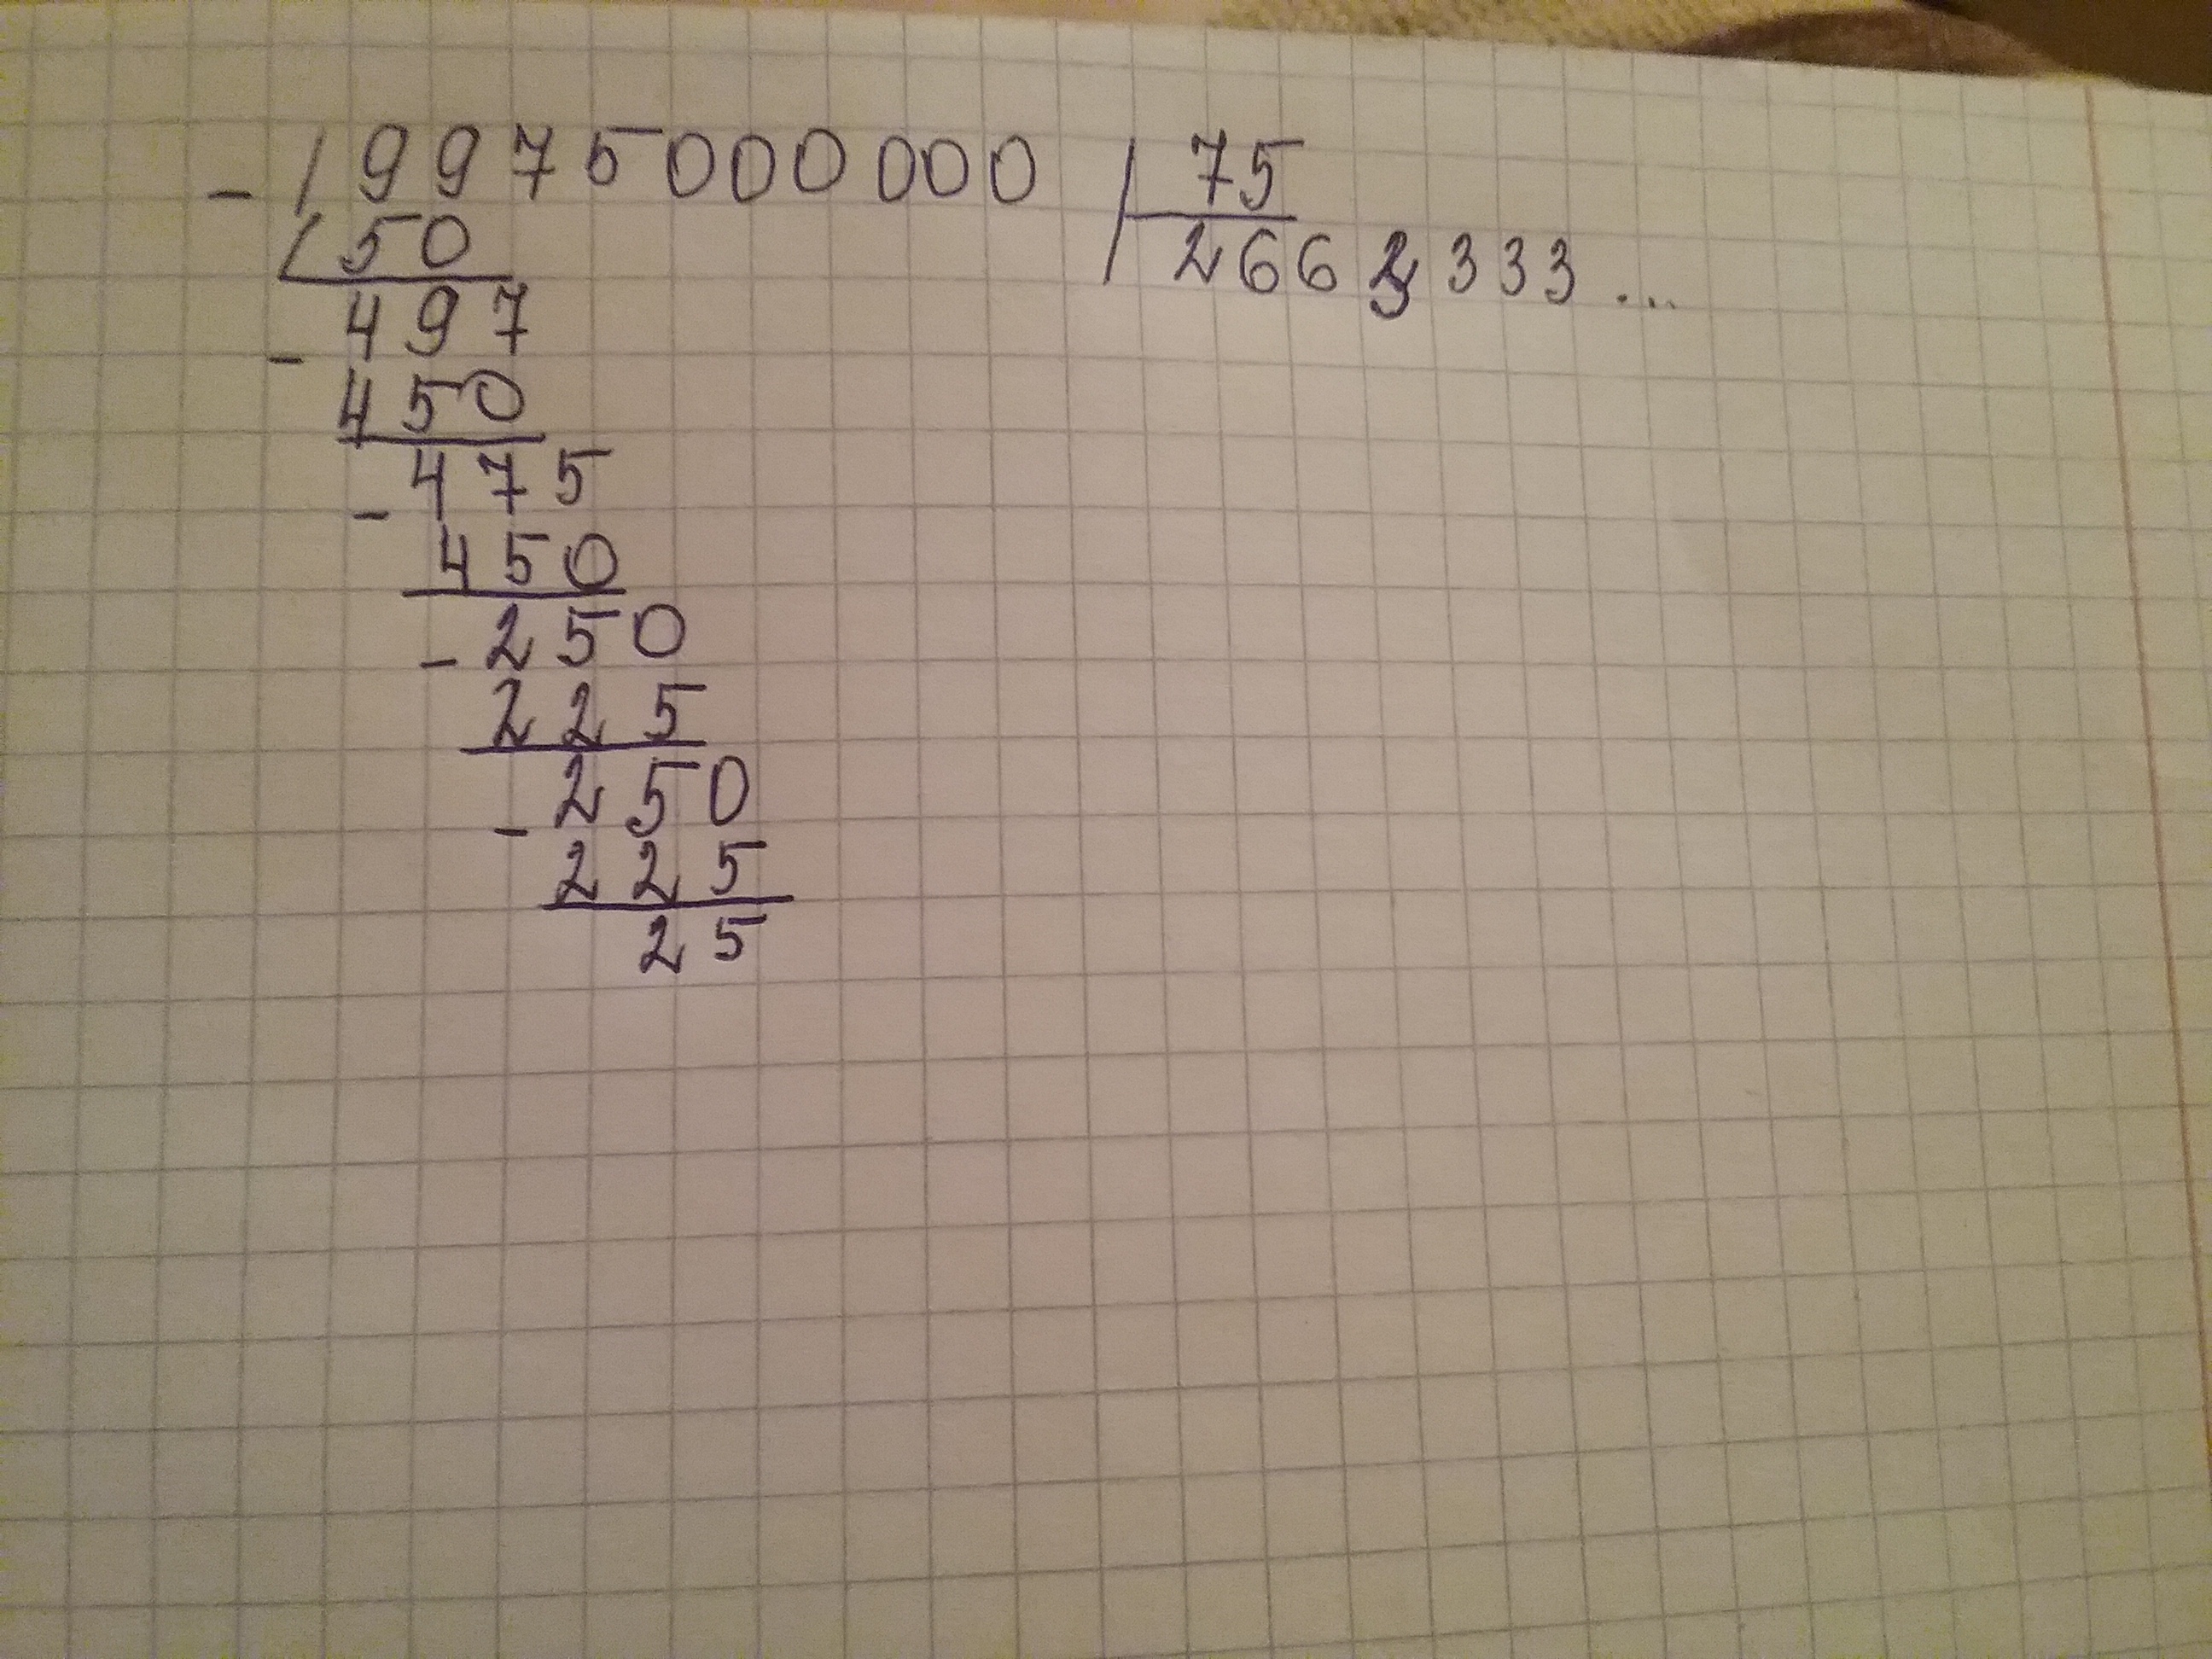 - 19975000000 | 75
150 2663333...
497
- 450
475
- 450
- 250
225
- 250
225
25